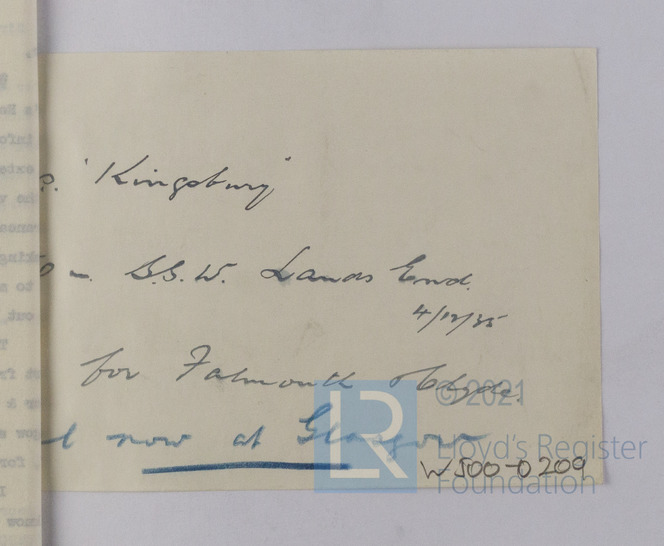 'Kingsbury'
- S.S.W. Lands End.
4/12/35
for Falmouth & Clyde.
now at Glasgow
LR © 2021
Lloyd's Register
Foundation
W500-0209